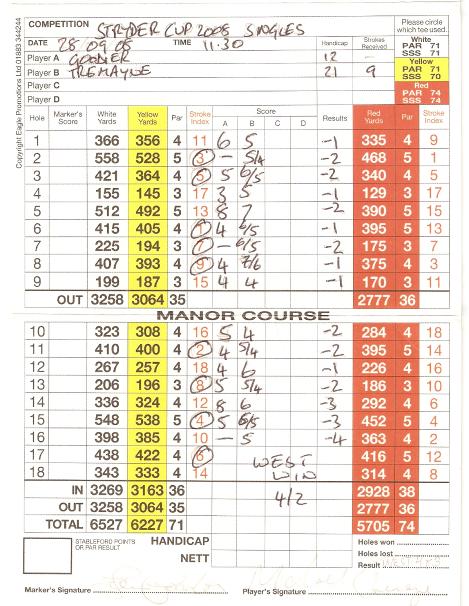 Copyright Eagle Promotions Ltd 01883 344244
COMPETITION STRYDER CUP 2008 SINGLES
Please circle which tee used.
DATE 28.09.08 TIME 11.30 Handicap Strokes Received
White PAR 71 SSS 71
Player A GOODIER 12 -
Yellow PAR 71 SSS 70
Player B TREMAYNE 21 9
Player C
Red PAR 74 SSS 74
Player D
Hole Marker's Score White Yards Yellow Yards Par Stroke Index Score A B C D Results Red Yards Par Stroke Index
1 366 356 4 11 6 5 -1 335 4 9
2 558 528 5 3 - 5/4 -2 468 5 1
3 421 364 4 5 5 6/5 -2 340 4 5
4 155 145 3 17 3 5 -1 129 3 17
5 512 492 5 13 8 7 -2 390 5 15
6 415 405 4 1 4 6/5 -1 395 5 13
7 225 194 3 7 - 6/5 -2 175 3 7
8 407 393 4 9 4 7/6 -1 375 4 3
9 199 187 3 15 4 4 -1 170 3 11
OUT 3258 3064 35 2777 36
MANOR COURSE
10 323 308 4 16 5 4 -2 284 4 18
11 410 400 4 2 4 5/4 -2 395 5 14
12 267 257 4 18 4 6 -1 226 4 16
13 206 196 3 8 5 5/4 -2 186 3 10
14 336 324 4 12 8 6 -3 292 4 6
15 548 538 5 4 5 6/5 -3 452 5 4
16 398 385 4 10 - 5 -4 363 4 2
17 438 422 4 6 416 5 12
18 343 333 4 14 314 4 8
WEST WIN
4/2
IN 3269 3163 36 2928 38
OUT 3258 3064 35 2777 36
TOTAL 6527 6227 71 5705 74
STABLEFORD POINTS OR PAR RESULT
HANDICAP
NETT
Holes won
Holes lost
Result
Marker's Signature Player's Signature